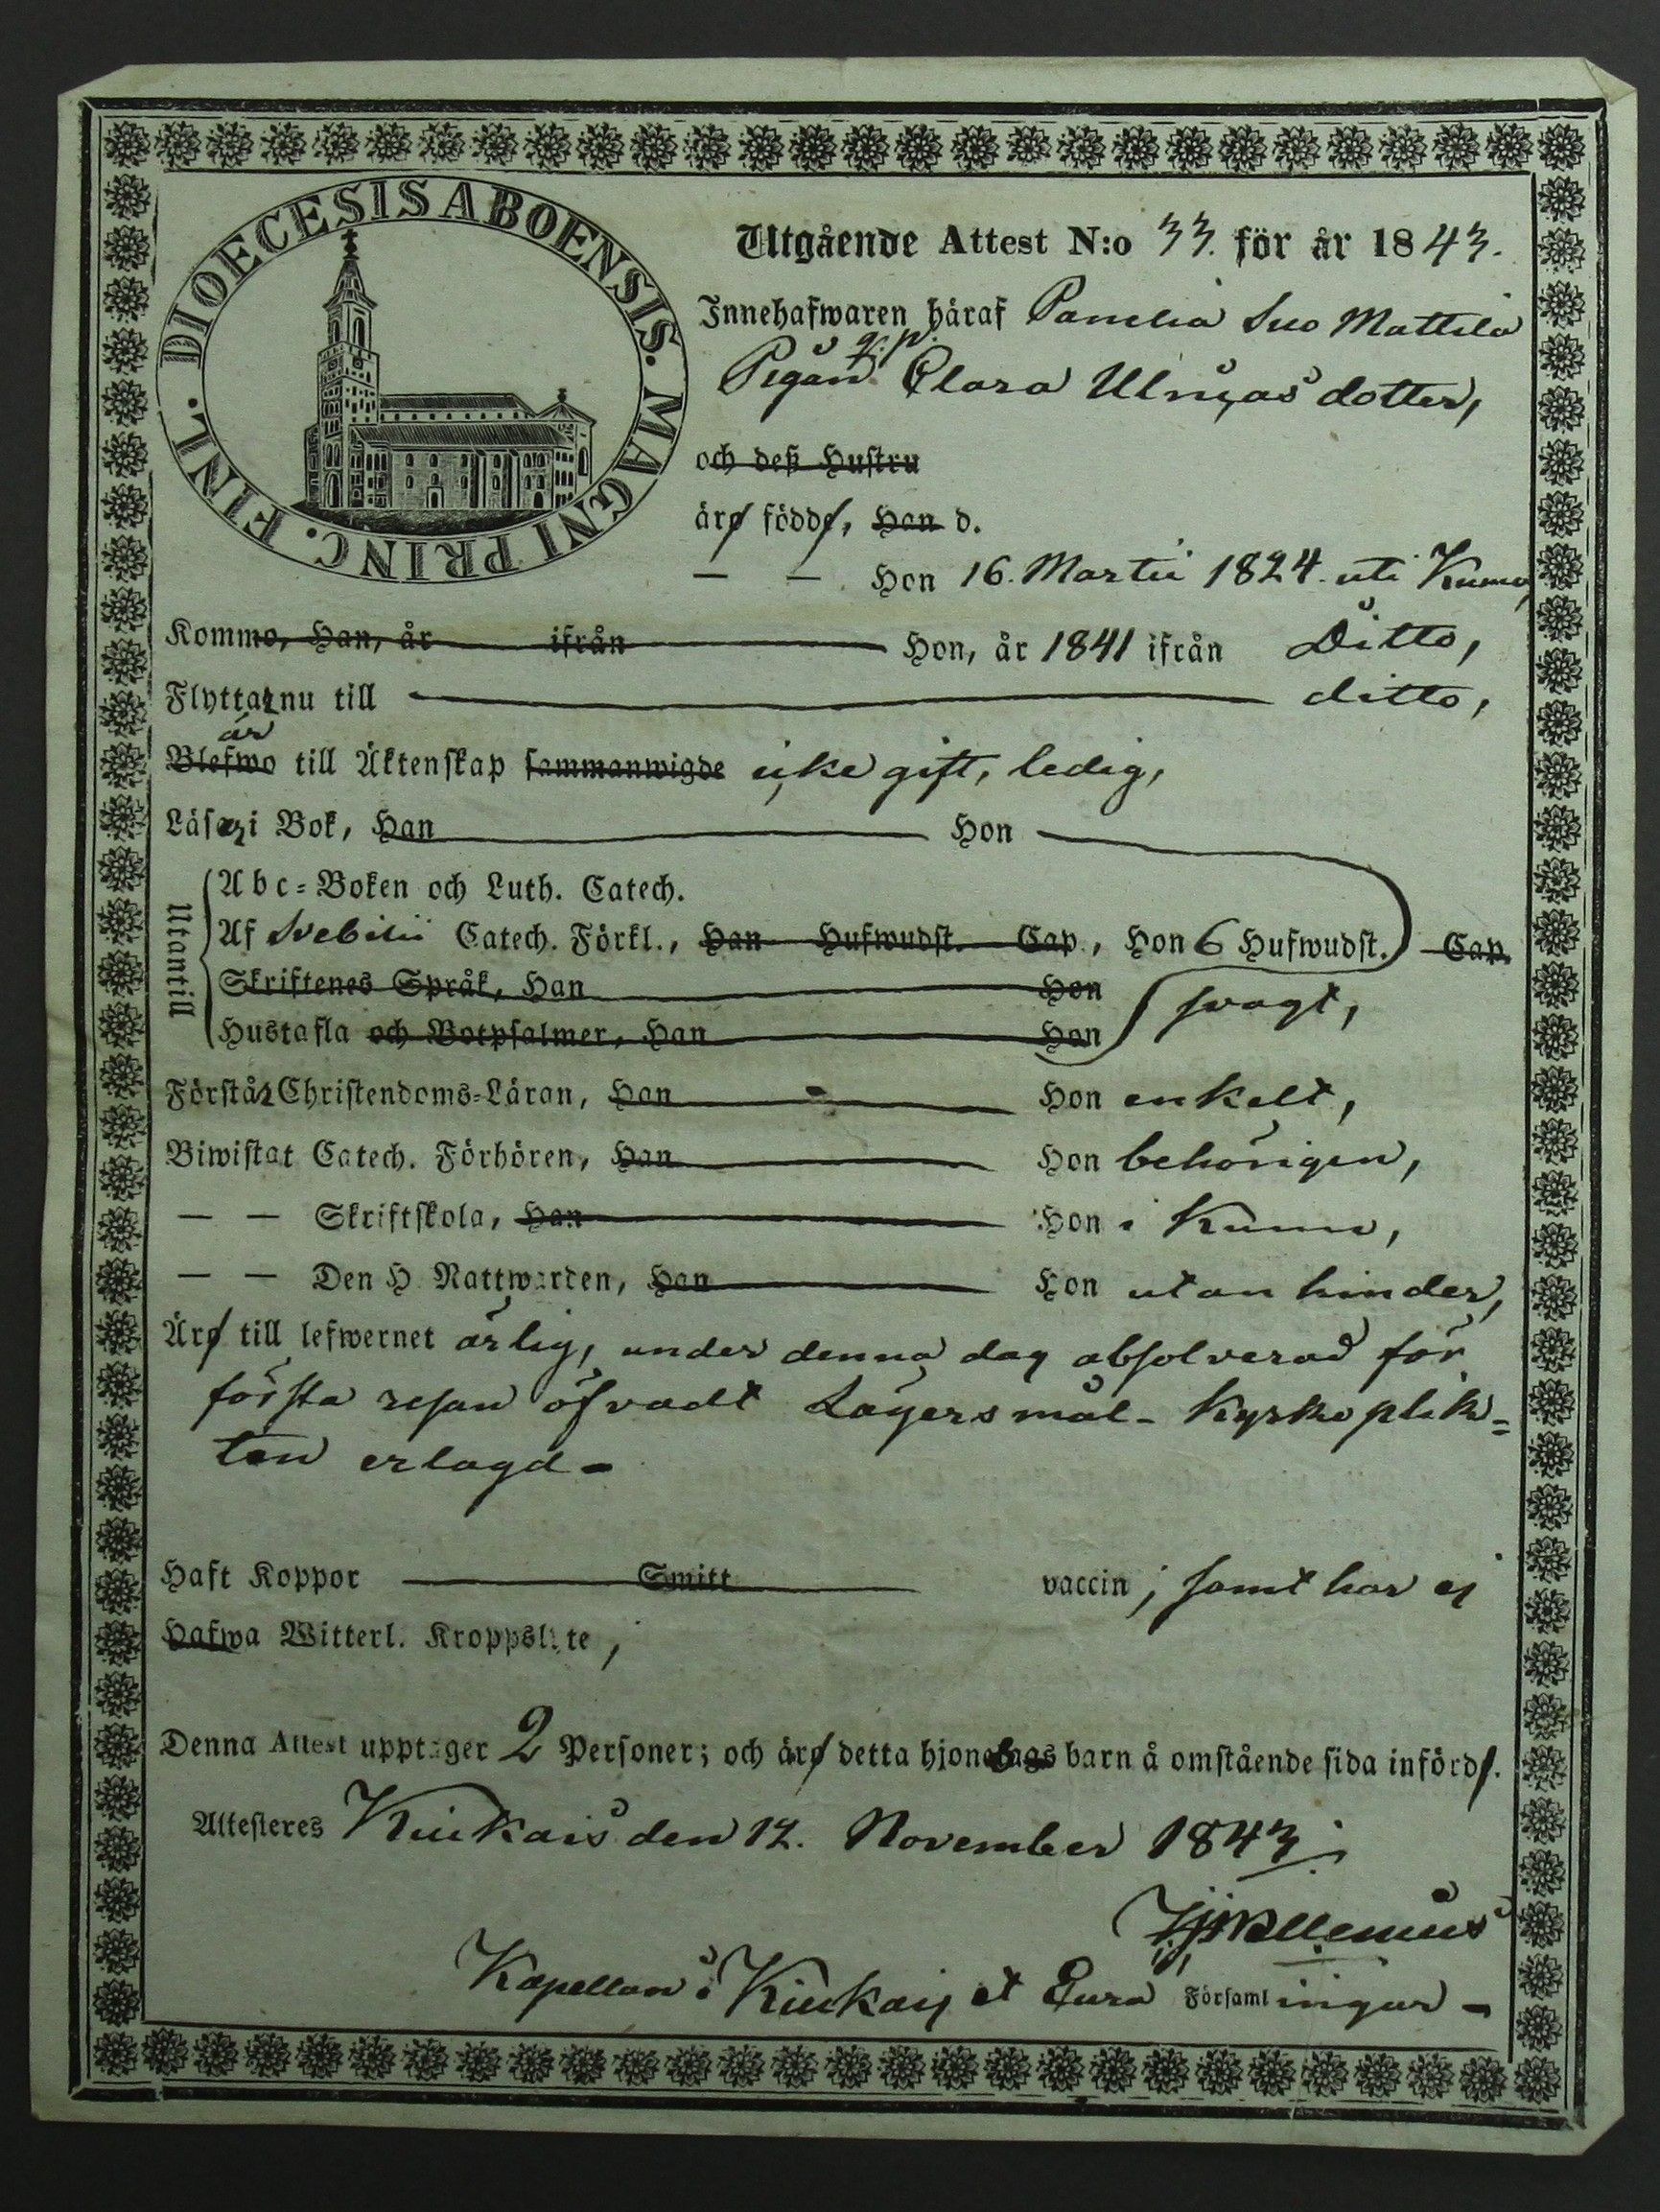 DIOECESIS ABOENSIS. MAGNI PRINC. FINL.
Utgående Attest N:o 33. för år 1843.
Innehafwaren häraf Panelia Suo Mattila
Pigan q.p. Clara Ulricasdotter,
och deß Hustru
äro födde, Han d.
— — Hon 16. Martii 1824. uti Kumo,
Kommo, Han, år ifrån Hon, år 1841 ifrån Ditto,
Flyttar nu till ditto,
är
Blefwo till Äktenskap sammanwigde icke gift, ledig,
Läser i Bok, Han Hon
Utantill
Abc-Boken och Luth. Catech.
Af Svebilii Catech. Förkl., Han Hufwudst. Cap., Hon 6 Hufwudst. Cap.
Skriftenes Språk, Han Hon svagt,
Hustafla och Botpsalmer, Han Hon
Förstår Christendoms-Läran, Han Hon enkelt,
Biwistat Catech. Förhören, Han Hon behörigen,
— — Skriftskola, Han Hon i Kumo,
— — Den H. Nattwarden, Han Hon utan hinder,
Äro till lefwernet ärlig, under denna dag absolverad för
första resan öfvadt Lägersmål - Kyrkoplik=
ten erlagd -
Haft Koppor Smitt vaccin; samt har ej
Hafwa Witterl. Kroppslyte,
Denna Attest upptager 2 Personer; och äro detta hjonelags barn å omstående sida införde.
Attesteres Kiukais den 12. November 1843
Kapellan i Kiukais et Eura Församlingar -